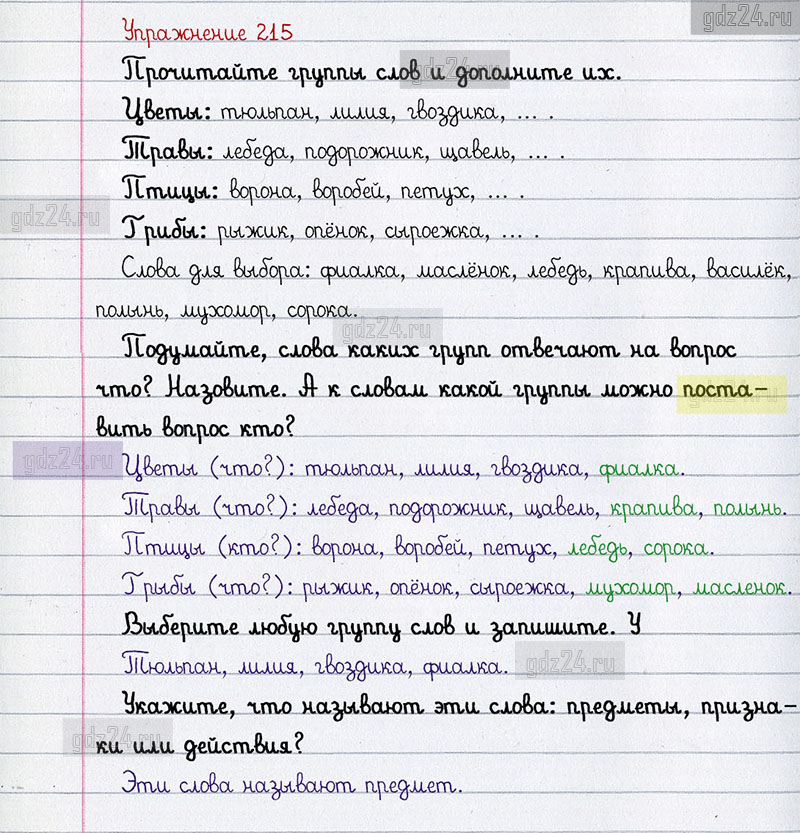 gdz24.ru
Упражнение 215
Прочитайте группы слов и дополните их.
gdz24.ru
Цветы: тюльпан, лилия, гвоздика, ... .
Травы: лебеда, подорожник, щавель, ... .
Птицы: ворона, воробей, петух, ... .
gdz24.ru
Грибы: рыжик, опёнок, сыроежка, ... .
Слова для выбора: фиалка, маслёнок, лебедь, крапива, василёк,
полынь, мухомор, сорока.
gdz24.ru
Подумайте, слова каких групп отвечают на вопрос
что? Назовите. А к словам какой группы можно поста-
gdz24.ru
вить вопрос кто?
gdz24.ru
Цветы (что?): тюльпан, лилия, гвоздика, фиалка.
Травы (что?): лебеда, подорожник, щавель, крапива, полынь.
Птицы (кто?): ворона, воробей, петух, лебедь, сорока.
Грыбы (что?): рыжик, опёнок, сыроежка, мухомор, масленок.
Выберите любую группу слов и запишите. У
Тюльпан, лилия, гвоздика, фиалка.
gdz24.ru
Укажите, что называют эти слова: предметы, призна-
gdz24.ru
ки или действия?
Эти слова называют предмет.